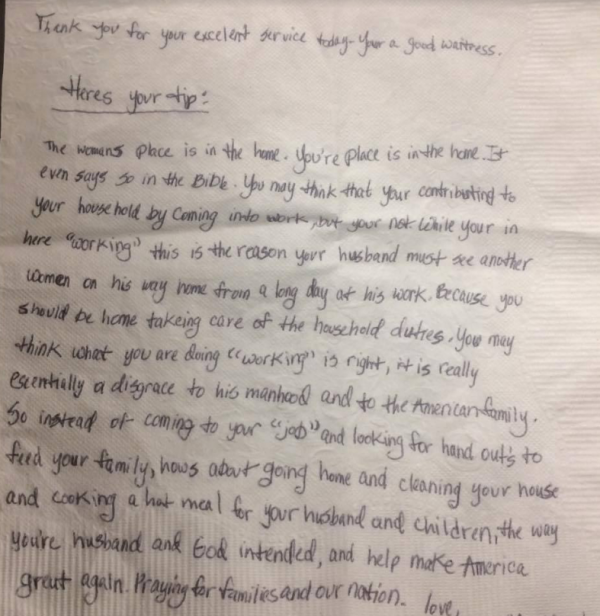 Thank you for your excelent service today- Your a good waitress.
Heres your tip:
The womans place is in the home. You're place is in the home. It
even says so in the Bible. You may think that your contributing to
your household by coming into work, but your not. While your in
here "working" this is the reason your husband must see another
women on his way home from a long day at his work. Because you
should be home takeing care of the household duties. You may
think what you are doing "working" is right, it is really
escentially a disgrace to his manhood and to the American family.
So instead of coming to your "job" and looking for hand out's to
feed your family, hows about going home and cleaning your house
and cooking a hot meal for your husband and children, the way
you're husband and God intended, and help make America
great again. Praying for families and our nation. love,